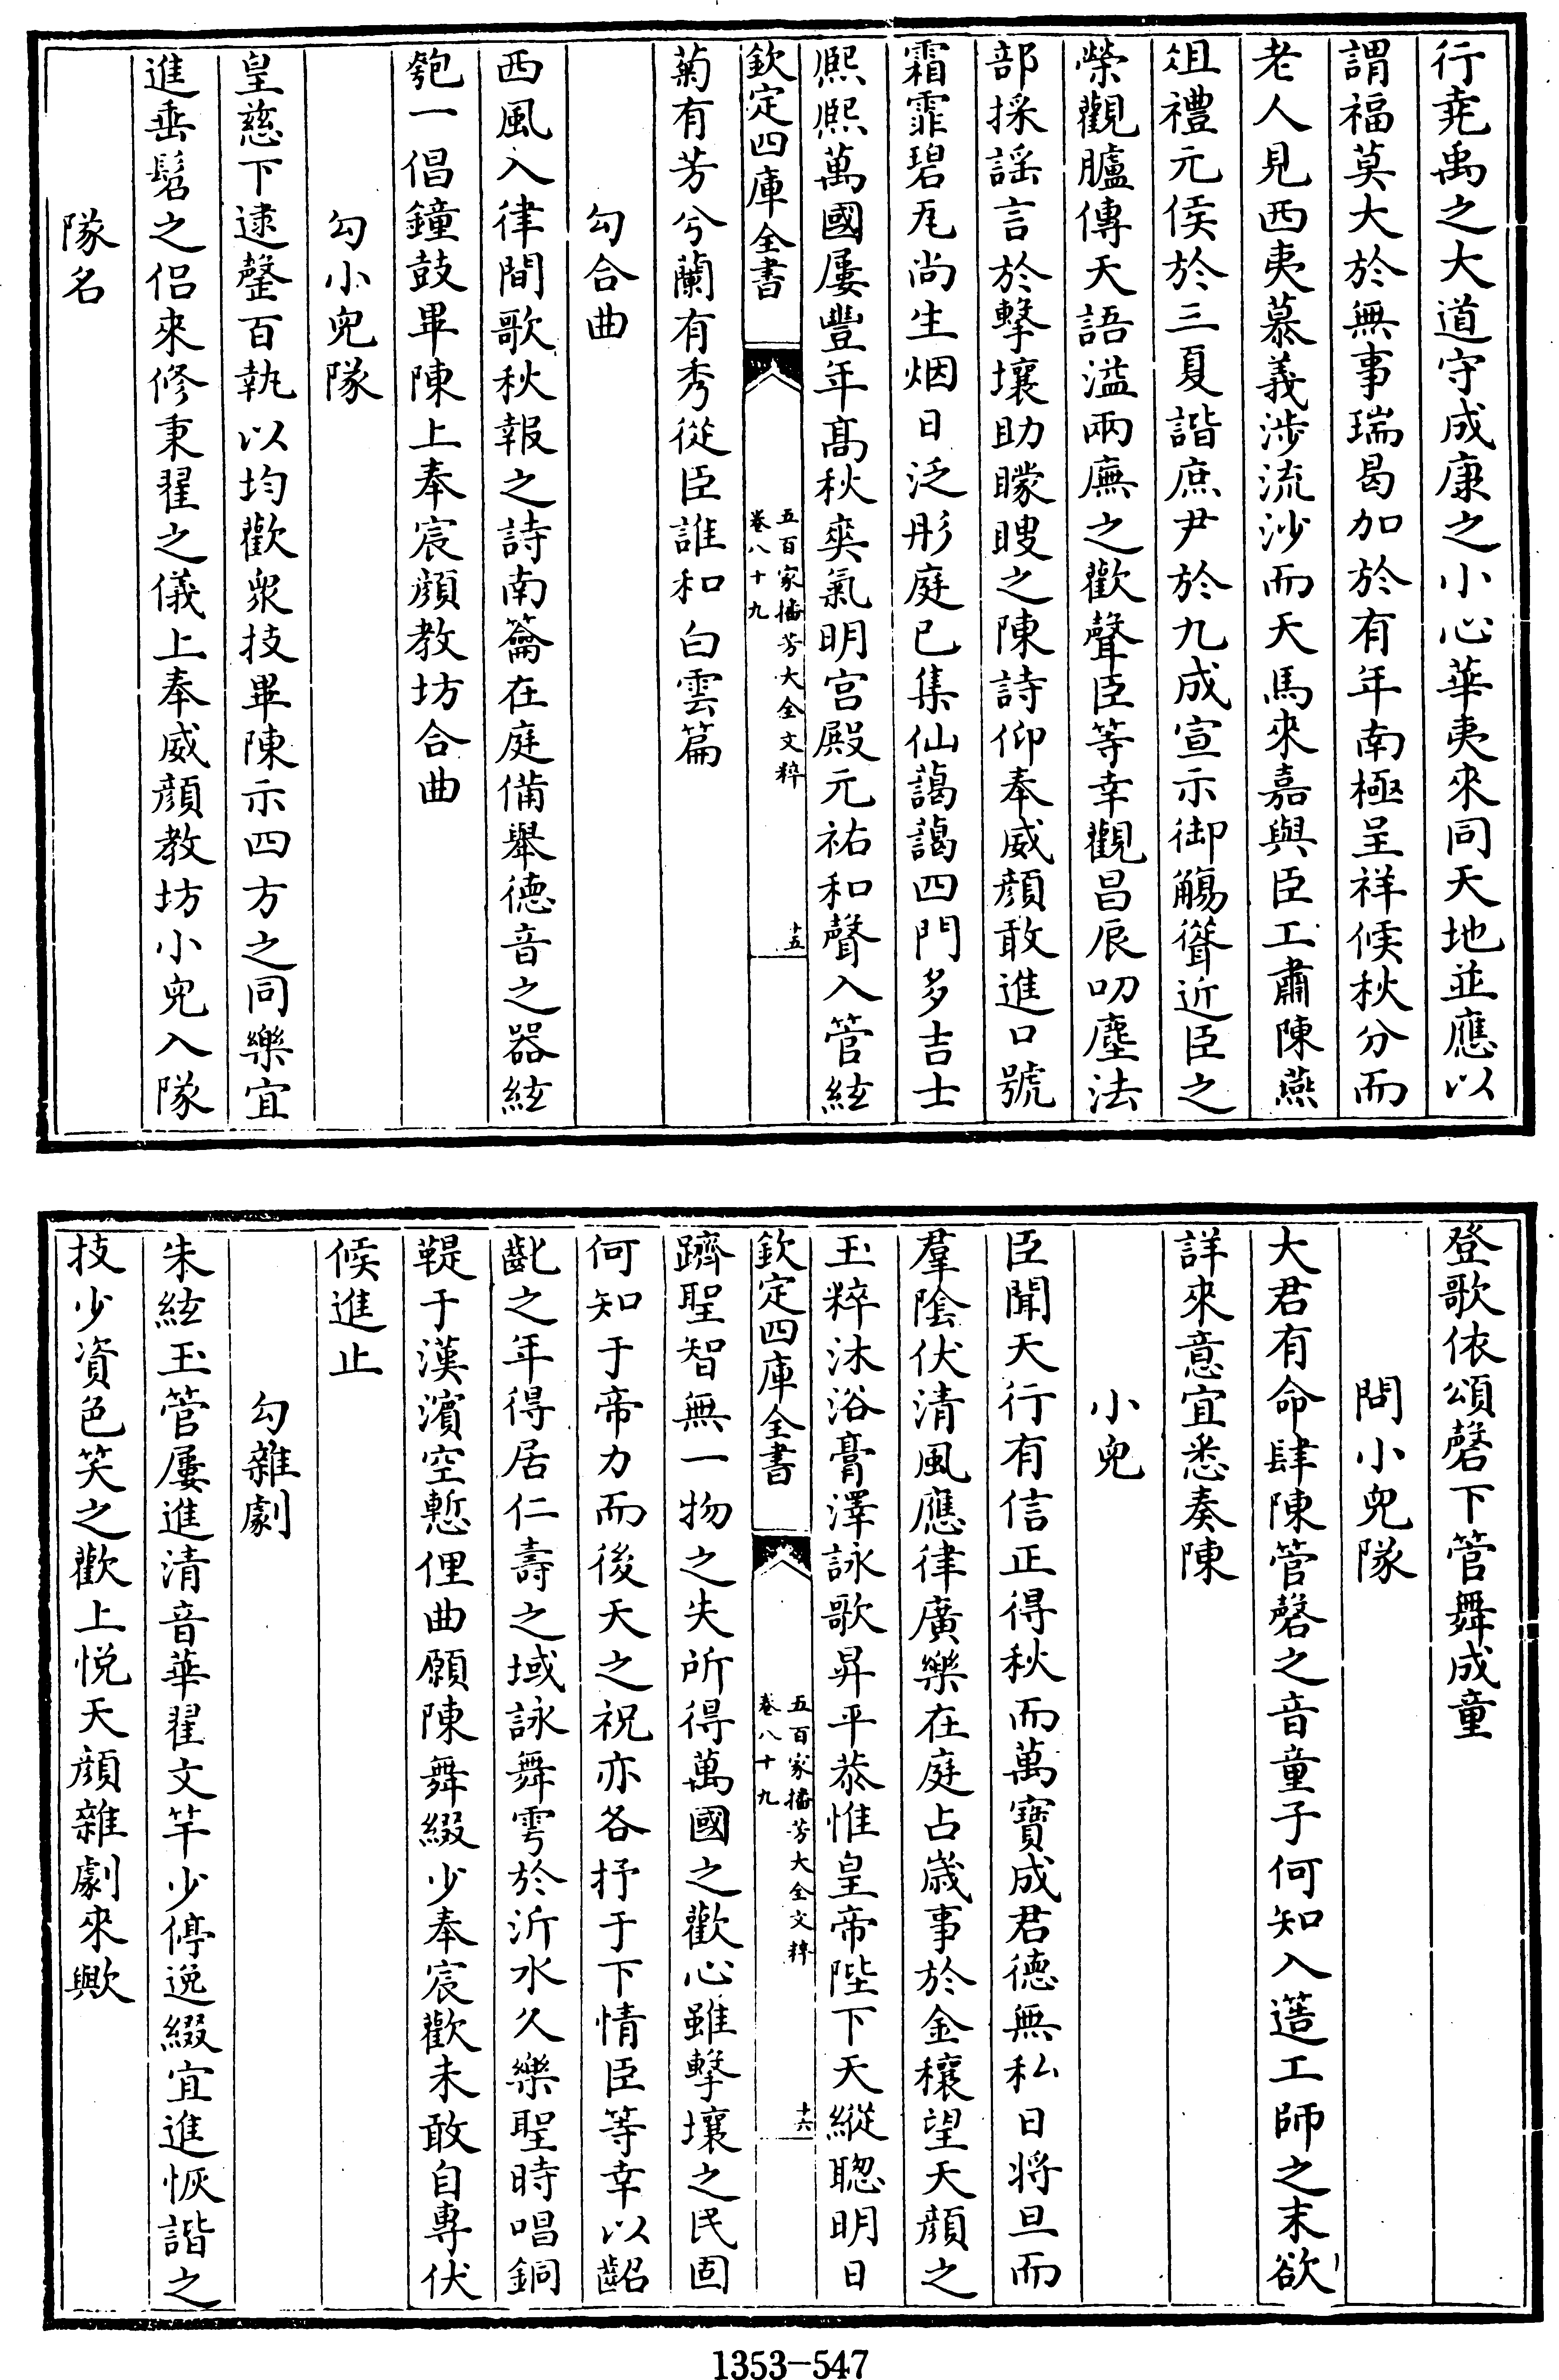 行堯禹之大道守成康之小心華夷來同天地並應以
謂福莫大於無事瑞曷加於有年南極呈祥候秋分而
老人見西夷慕義涉流沙而天馬來嘉與臣工肅陳燕
俎禮元侯於三夏諧庶尹於九成宣示御觴聳近臣之
榮觀臚傳天語溢兩廡之歡聲臣等幸觀昌辰叨塵法
部採謡言於擊壤助矇瞍之陳詩仰奉威顔敢進口號
霜霏碧瓦尚生烟日泛彤庭已集仙藹藹四門多吉士
熙熙萬國屢豐年髙秋爽氣明宫殿元祐和聲入管絃
欽定四庫全書
五百家播芳大全文粹
卷八十九
十五
菊有芳兮蘭有秀從臣誰和白雲篇
勾合曲
西風入律間歌秋報之詩南籥在庭備舉德音之器絃
匏一倡鐘鼓畢陳上奉宸顔教坊合曲
勾小兒隊
皇慈下逮罄百執以均歡衆技畢陳示四方之同樂宜
進垂髫之侣來修秉翟之儀上奉威顔教坊小兒入隊
隊名
登歌依頌磬下管舞成童
問小兒隊
大君有命肆陳管磬之音童子何知入簉工師之末欲
詳來意宜悉奏陳
小兒
臣聞天行有信正得秋而萬寶成君德無私日将旦而
羣隂伏清風應律廣樂在庭占歳事於金穰望天顔之
玉粹沐浴膏澤詠歌昇平恭惟皇帝陛下天縱聰明日
欽定四庫全書
五百家播芳大全文粹
卷八十九
十六
躋聖智無一物之失所得萬國之歡心雖擊壤之民固
何知于帝力而後天之祝亦各抒于下情臣等幸以齠
齔之年得居仁壽之域詠舞雩於沂水久樂聖時唱銅
鞮于漢濱空慙俚曲願陳舞綴少奉宸歡未敢自專伏
候進止
勾雜劇
朱絃玉管屢進清音華翟文竿少停逸綴宜進恢諧之
技少資色笑之歡上悦天顔雜劇來歟
1353-547